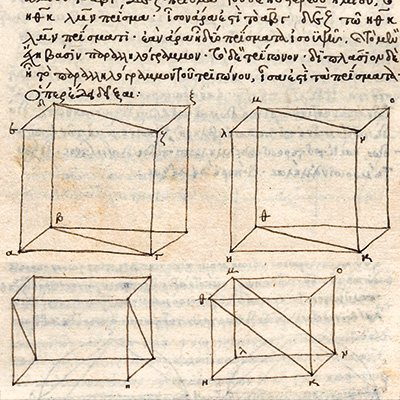 ηθκ λμν πρίσμα· ἴσον ἄρα ἐστὶ τὸ αβγ δεζ τῷ ηθκ
λμν πρίσματι· ἐὰν ἄρα ᾖ δύο πρίσματα ἰσοϋψῆ· τὸ μὲν
ἔχη βάσιν παραλληλόγραμμον· τὸ δὲ τρίγωνον· διπλάσιον δὲ
ᾖ τὸ παραλληλόγραμμον τοῦ τριγώνου, ἴσα ἐστὶ τὰ πρίσματα
ὅπερ ἔδει δεῖξαι·
ξ
ζ
β
α
γ
μ
ο
λ
ν
θ
η
κ
μ
ο
θ
λ
ν
η
κ